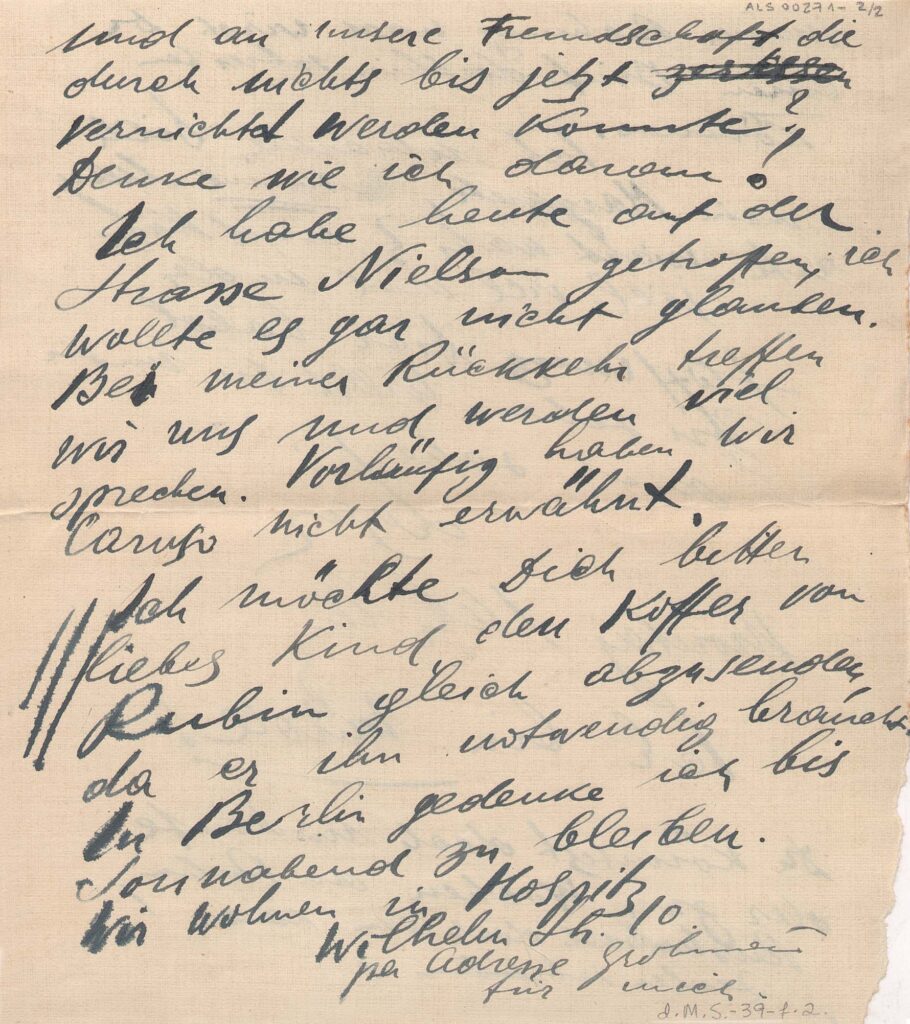 ALS 00271- 2/2
und an unsere Freundschaft die
durch nichts bis jetzt
vernichtet werden konnte?!
Denke wie ich daran.
Ich habe heute auf der
Strasse Nielson getroffen, ich
wollte es gar nicht glauben.
Bei meiner Rückkehr treffen
wir uns und werden viel
sprechen. Vorläufig haben wir
Caruso nicht erwähnt.
Ich möchte Dich bitten
liebes Kind, den Koffer von
Rubin gleich abzusenden,
da er ihn notwendig braucht.
In Berlin gedenke ich bis
Sonnabend zu bleiben.
Wir wohnen in Hospitz
Wilhelm St. 10.
per Adresse Grohmann
für mich.
d.M.S.-39-f.2.